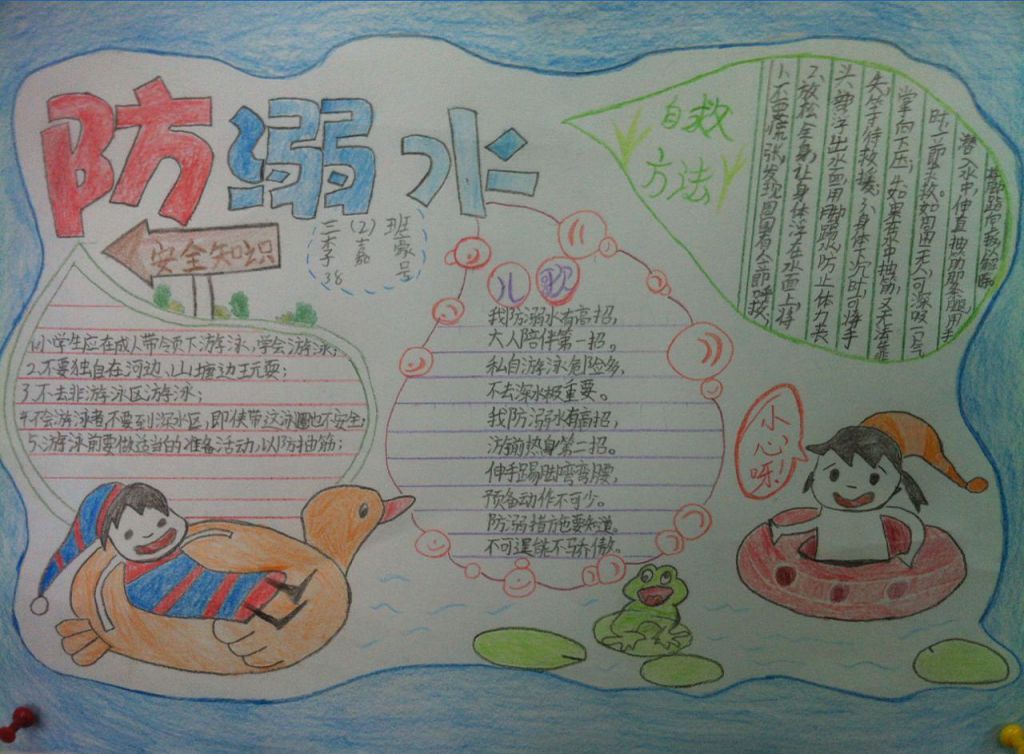 防溺水
三(2)班
李嘉豪
38号
安全知识
1.小学生应在成人带领下游泳,学会游泳;
2.不要独自在河边、山塘边玩耍;
3.不去非游泳区游泳;
4.不会游泳者不要到深水区,即使带这泳圈也不安全;
5.游泳前要做适当的准备活动,以防抽筋;
儿歌
我防溺水有高招,
大人陪伴第一招。
私自游泳危险多,
不去深水极重要。
我防溺水有高招,
游前热身第二招。
伸手踢脚弯弯腰,
预备动作不可少。
防溺措施也要知道。
不可逞能不骄傲。
自救方法
1、不要慌张,发现周围有人立即呼救,
2、放松全身,让身体浮在水面上,将
头部浮出水面用脚踢水,防止体力丧
失,等待救援;3、身体下沉时,可将手
掌向下压;如果在水中抽筋,又无法靠
时,立即求救。如周边无人,可深吸一口气
潜入水中,伸直抽筋那条腿,用手
小心呀!